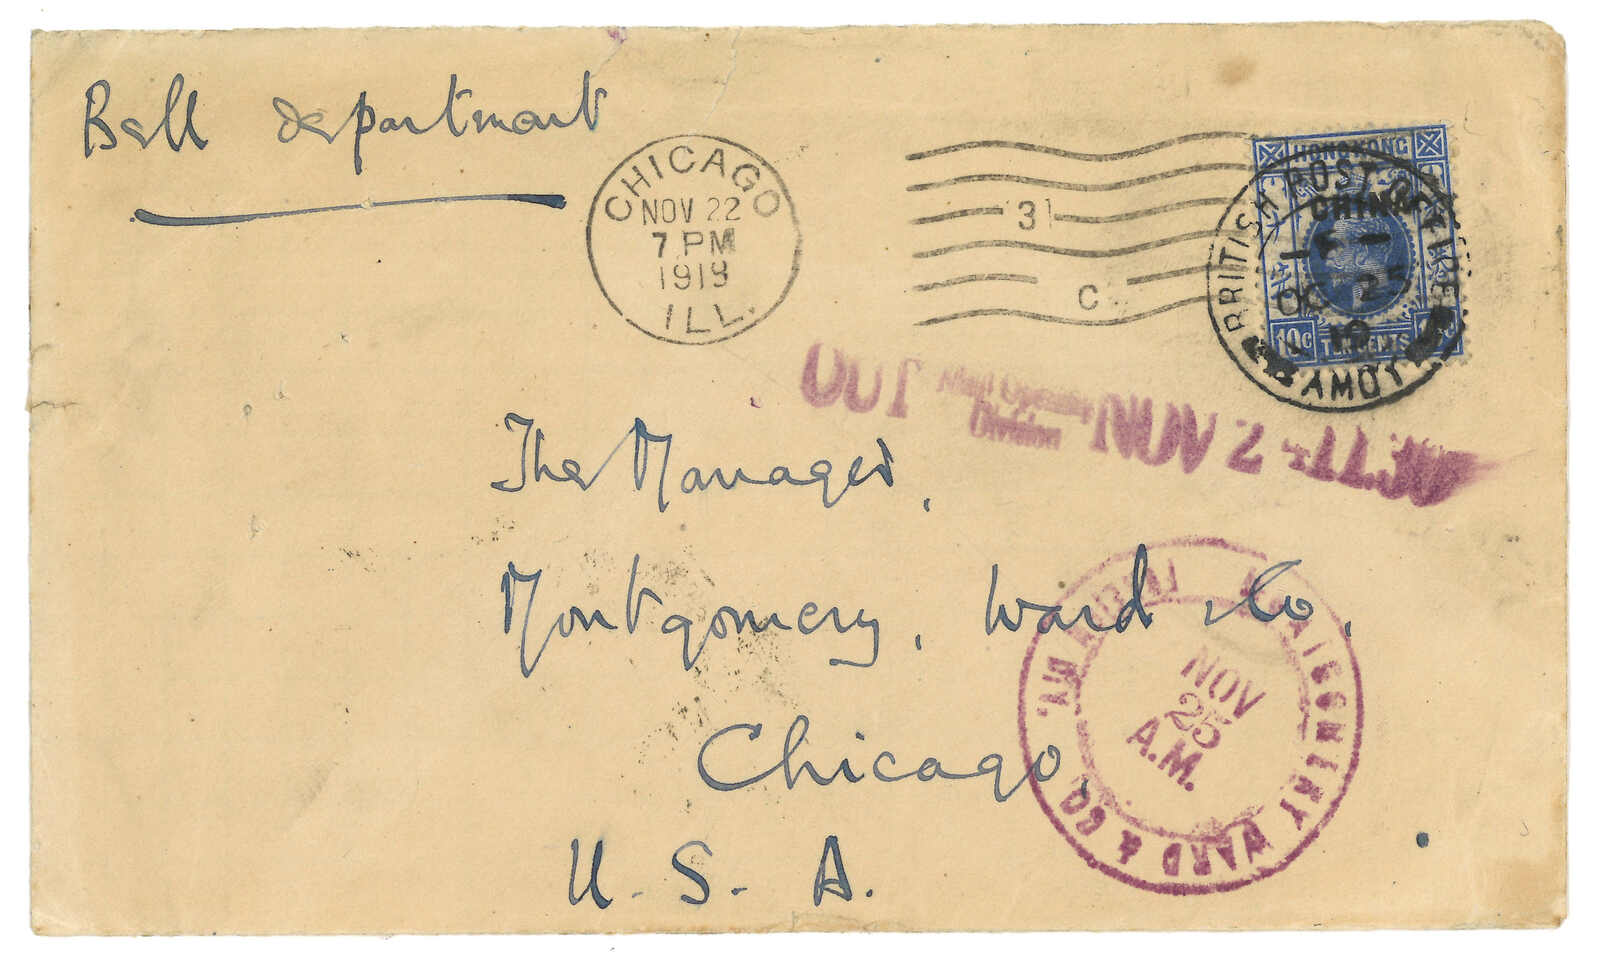 Bell department
CHICAGO
NOV 22
7 PM
1919
ILL.
31
C
HONGKONG
CHINA
10c TEN CENTS
BRITISH POST OFFICE
1 F
OC 25
19
AMOY
OUT Mail Opening Division NOV 24
The Manager,
Montgomery, Ward & Co.
Chicago,
U. S. A.
MONTGOMERY WARD & CO.
NOV
25
A.M.